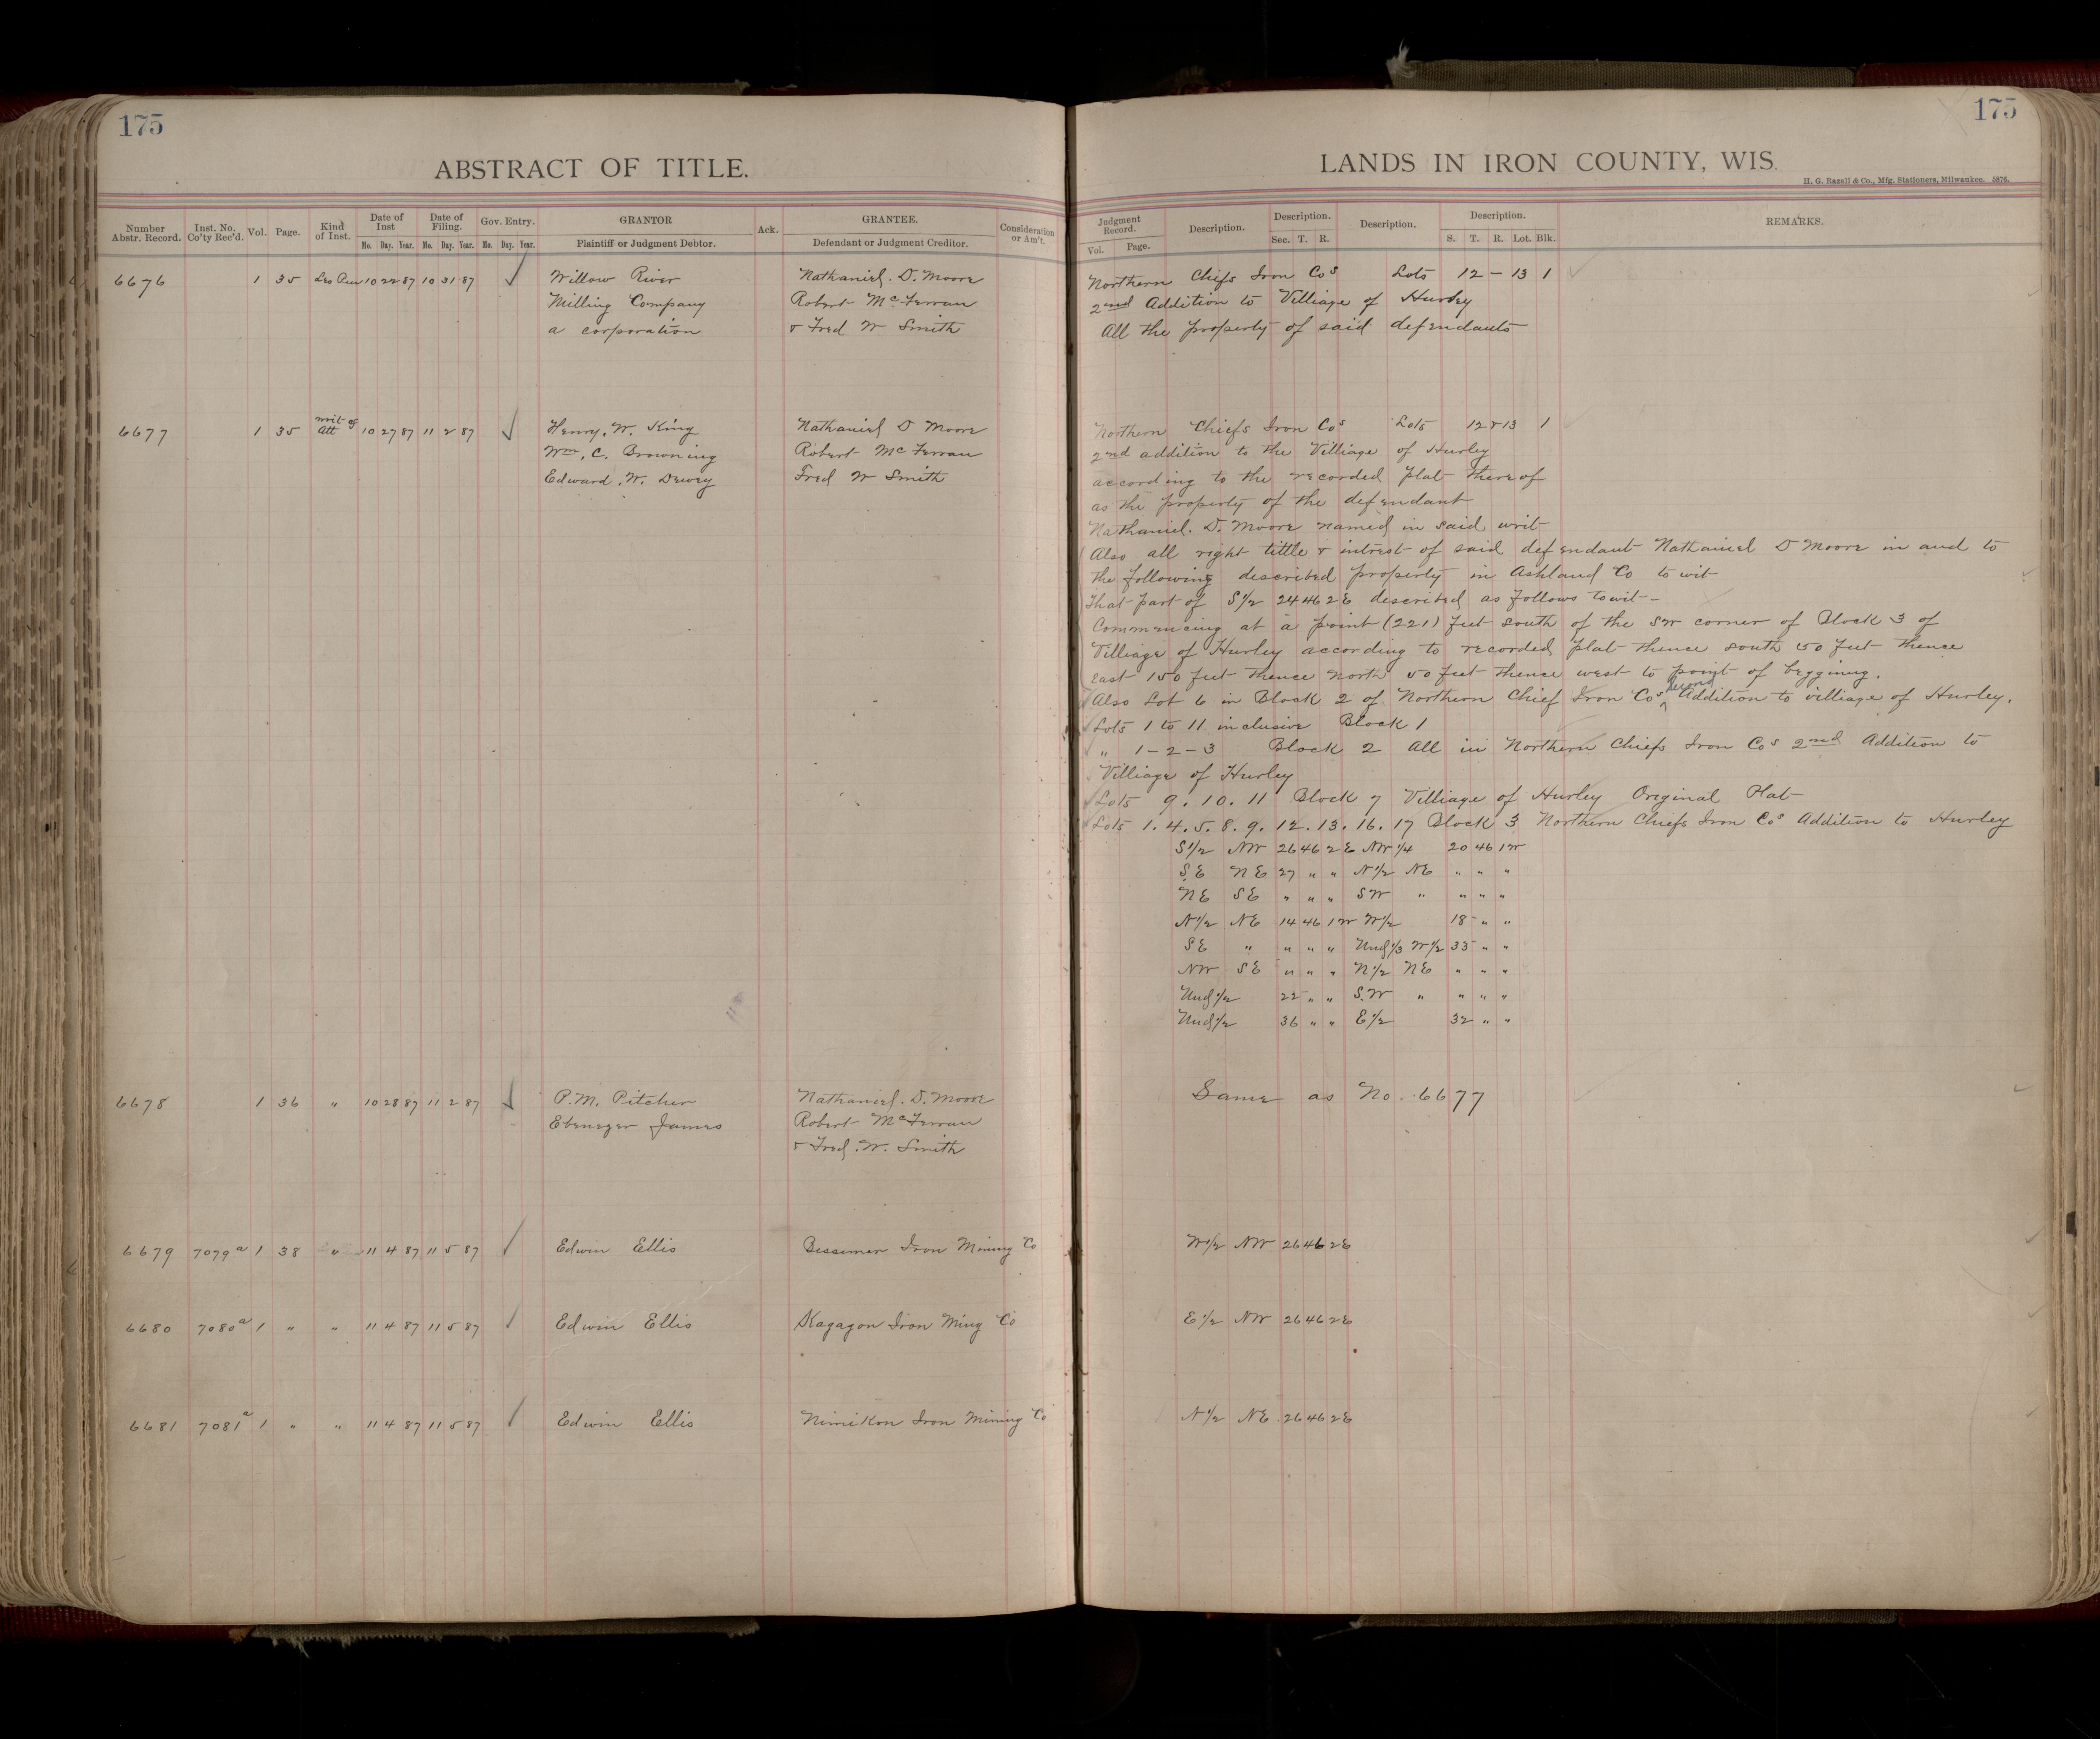 175
ABSTRACT OF TITLE.
Number Abstr. Record. Inst. No. Co'ty Rec'd. Vol. Page. Kind of Inst. Date of Inst Mo. Day. Year. Date of Filing. Mo. Day. Year. Gov. Entry. Mo. Day. Year. GRANTOR Plaintiff or Judgment Debtor. Ack. GRANTEE. Defendant or Judgment Creditor. Consideration or Am't.
6676 1 35 Les Pen 10 22 87 10 31 87 ✓ Willow River Nathaniel. D. Moore
Milling Company Robert McFerran
a corporation & Fred W Smith
6677 1 35 writ of Att 10 27 87 11 2 87 ✓ Henry. W. King Nathaniel D Moore
Wm. C. Browning Robert McFerran
Edward. W. Dewey Fred W Smith
6678 1 36 " 10 28 87 11 2 87 ✓ P. M. Pitcher Nathaniel. D. Moore
Ebenezer James Robert McFerran
& Fred. W. Smith
6679 7079a 1 38 " 11 4 87 11 5 87 ✓ Edwin Ellis Bessemer Iron Mining Co
6680 7080a 1 " " 11 4 87 11 5 87 ✓ Edwin Ellis Kagagon Iron Ming Co
6681 7081a 1 " " 11 4 87 11 5 87 ✓ Edwin Ellis Nimikon Iron Mining Co
175
LANDS IN IRON COUNTY, WIS.
H. G. Razall & Co., Mfg. Stationers, Milwaukee. 5876.
Judgment Record. Vol. Page. Description. Description. Sec. T. R. Description. Description. S. T. R. Lot. Blk. REMARKS.
Northern Chiefs Iron Cos Lots 12 - 13 1
2nd Addition to Villiage of Hurley
All the property of said defendants
Northern Chiefs Iron Cos Lots 12 & 13 1
2nd addition to the Villiage of Hurley
according to the recorded plat thereof
as the property of the defendant
Nathaniel. D. Moore named in said writ
Also all right tittle & intrest of said defendant Nathaniel D Moore in and to
the following described property in Ashland Co to wit
That part of S1/2 24 46 2 E described as follows towit -
Commencing at a point (221) feet south of the SW corner of Block 3 of
Villiage of Hurley according to recorded plat thence south 50 feet thence
east 150 feet thence north 50 feet thence west to point of beggining.
Also Lot 6 in Block 2 of Northern Chief Iron Cos second Addition to villiage of Hurley.
Lots 1 to 11 inclusive Block 1
" 1-2-3 Block 2 All in Northern Chiefs Iron Cos 2nd Addition to
Villiage of Hurley
Lots 9. 10. 11 Block 7 Villiage of Hurley Original Plat
Lots 1. 4. 5. 8. 9. 12. 13. 16. 17 Block 3 Northern Chiefs Iron Cos Addition to Hurley
S1/2 NW 26 46 2 E NW 1/4 20 46 1W
SE NE 27 " " N1/2 NE " " "
NE SE " " " SW " " " "
N1/2 NE 14 46 1W W1/2 18 " "
SE " " " " Und 1/3 W1/2 33 " "
NW SE " " " N1/2 NE " " "
Und 1/2 22 " " S.W " " " "
Und 1/2 36 " " E1/2 32 " "
Same as No. 6677
W1/2 NW 26 46 2 E
E1/2 NW 26 46 2 E
N1/2 NE 26 46 2 E